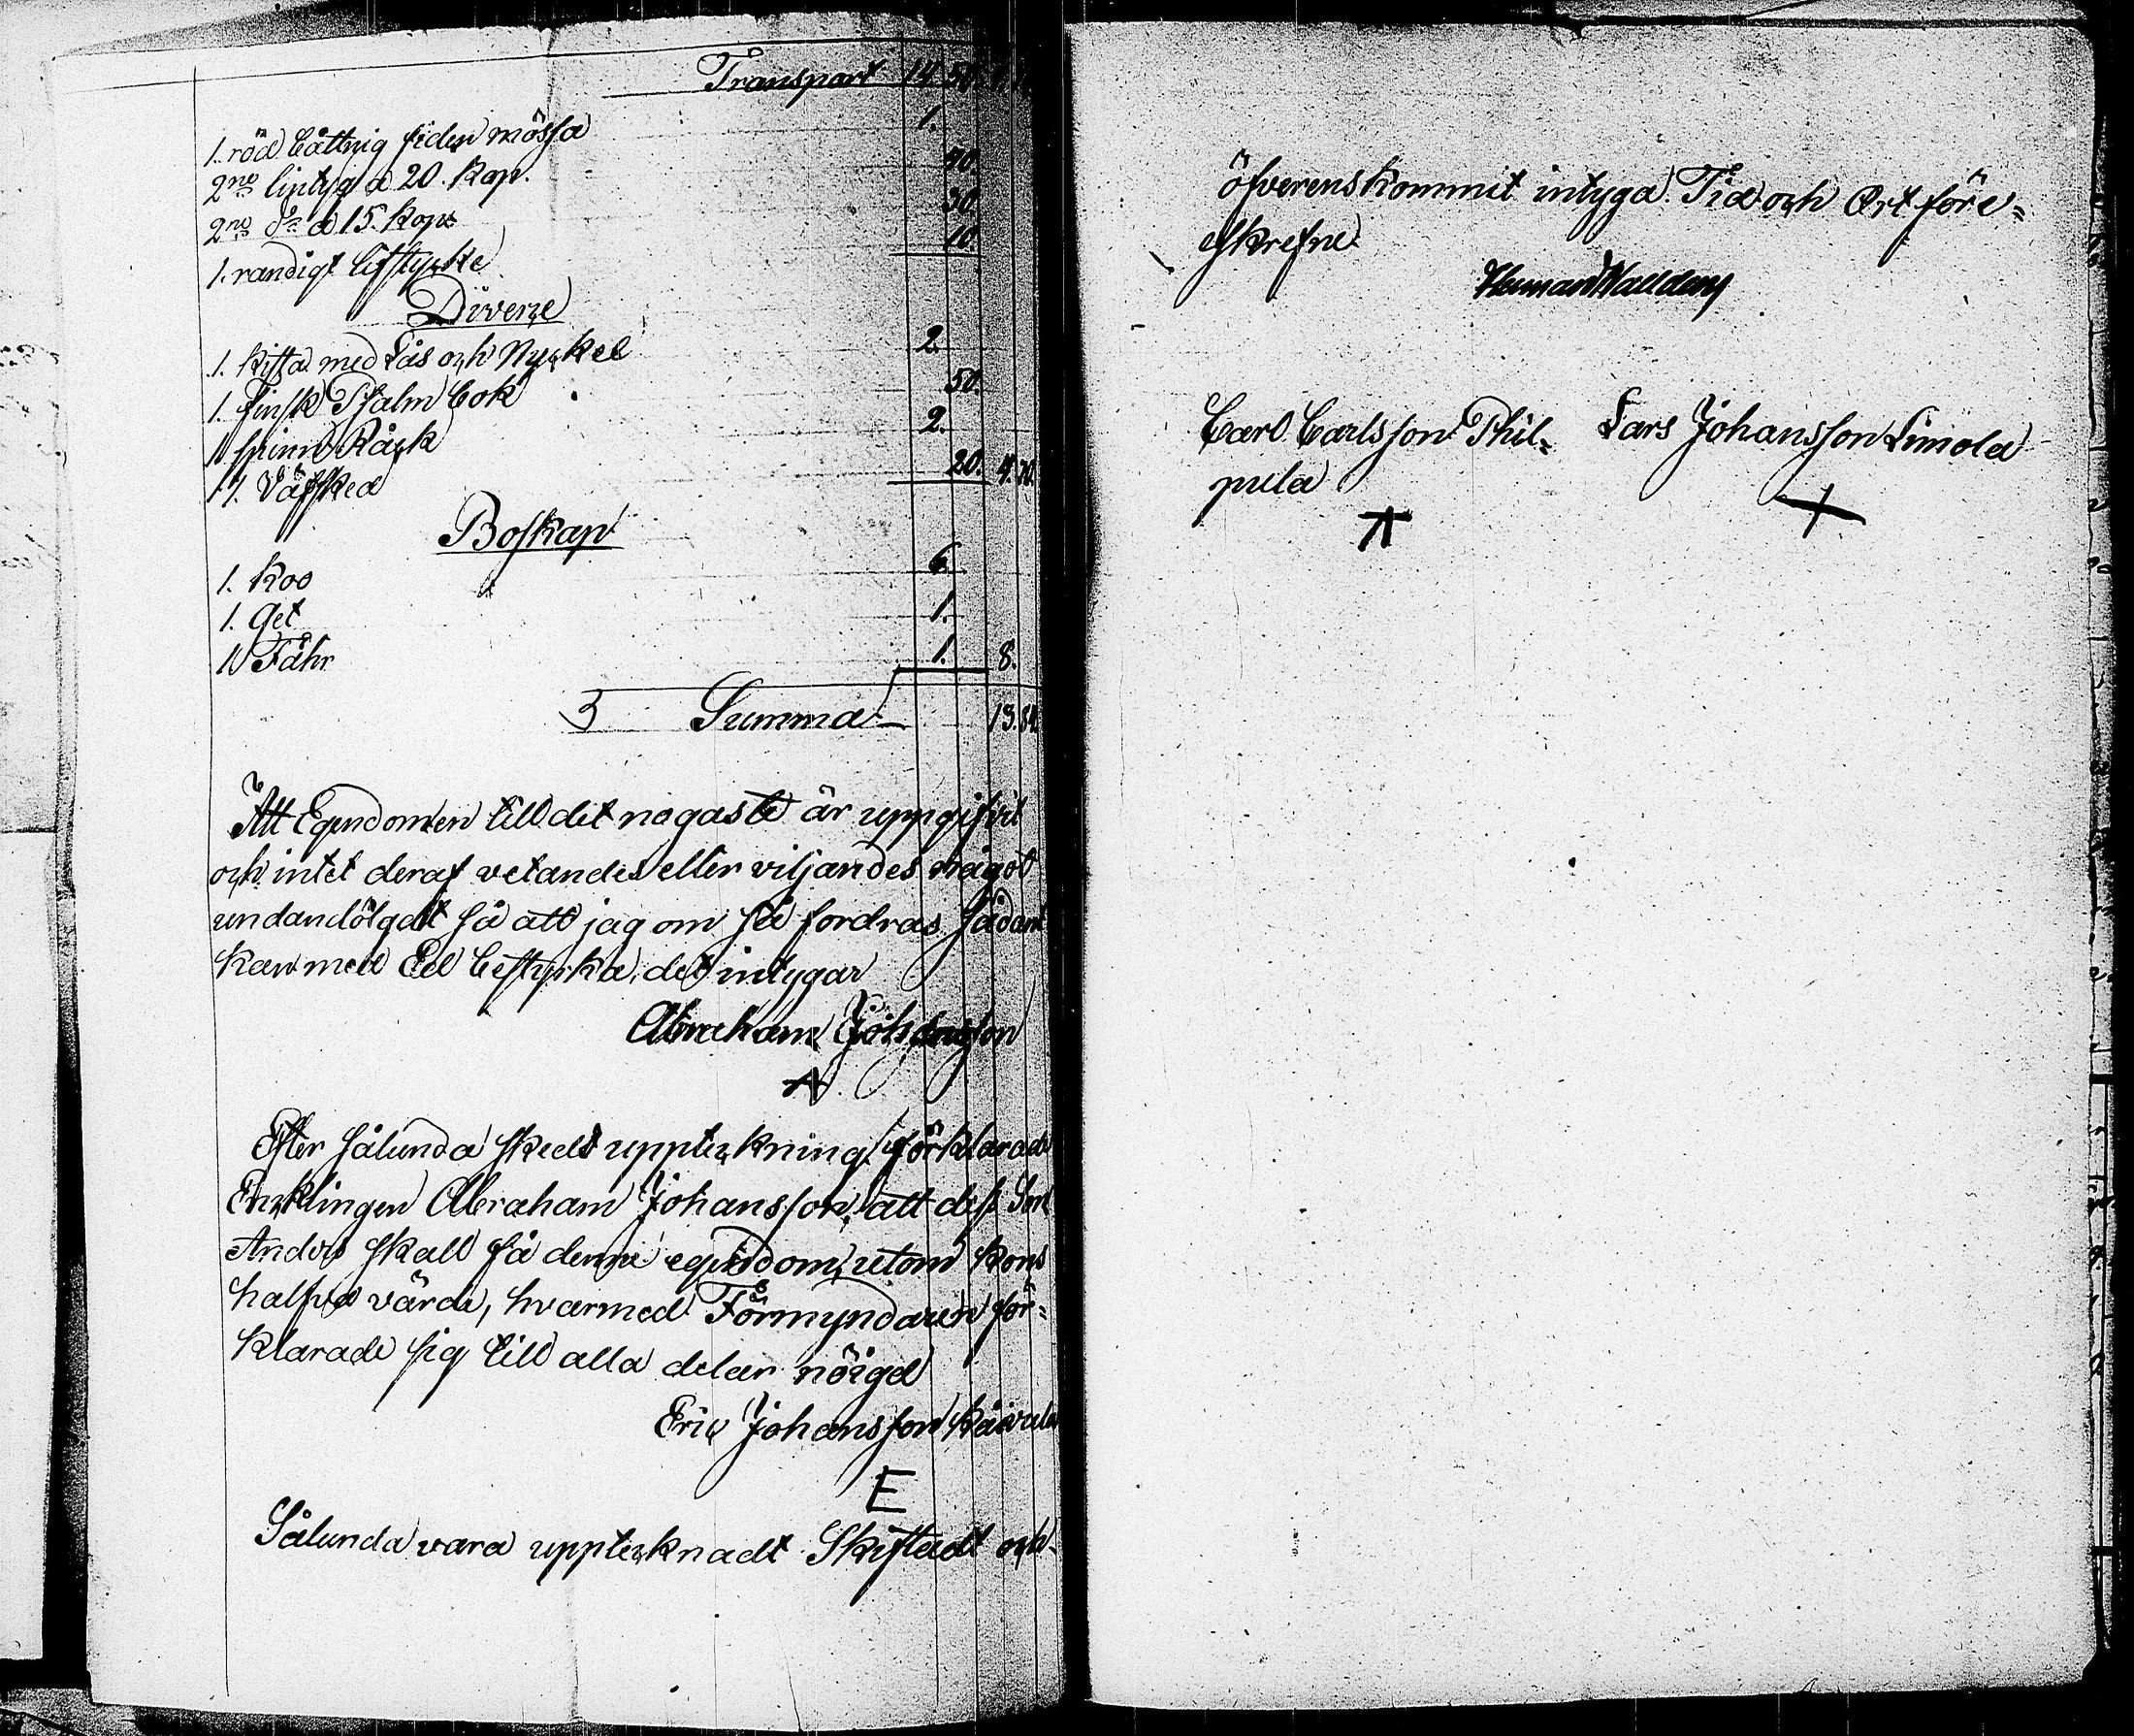 Transport 14. 50.
1. röd båttnig siden mössa 1.
2ne lintyg a 20. kop. 40.
2ne do a 15. kop. 30.
1. randigt lifstycke 10
Diverse
1. kista med Lås och Nyckel 2.
1. finsk Psalm bok 50.
1 spinn Råck 2.
1. Väfsked 20. 4. 70.
Boskap
1. Koo 6.
1. Get 1.
1 Fåhr 1. 8.
Summa 13.
Att Egendomen till det nogaste är uppgifvit
och intet deraf vetandes eller viljandes något
undandölgdt så att jag om så fordras sådant
kan med Ed bestyrka, det intygar
Abraham Johansson
Efter sålunda skedt uppteckning förklarade
Encklingen Abraham Johansson, att dess Son
Anders skall få denne egendom, utom kons
halfva värde, hvarmed Förmyndaren för=
klarade sig till alla delar nöigd
Eric Johansson
E
Sålunda vara upptecknadt Skiftadt och
öfverenskommit intyga. Tid och Ort före=
skrefne
Herman Walldén
Carl Carlsson Phil= Lars Johansson Simola
pula